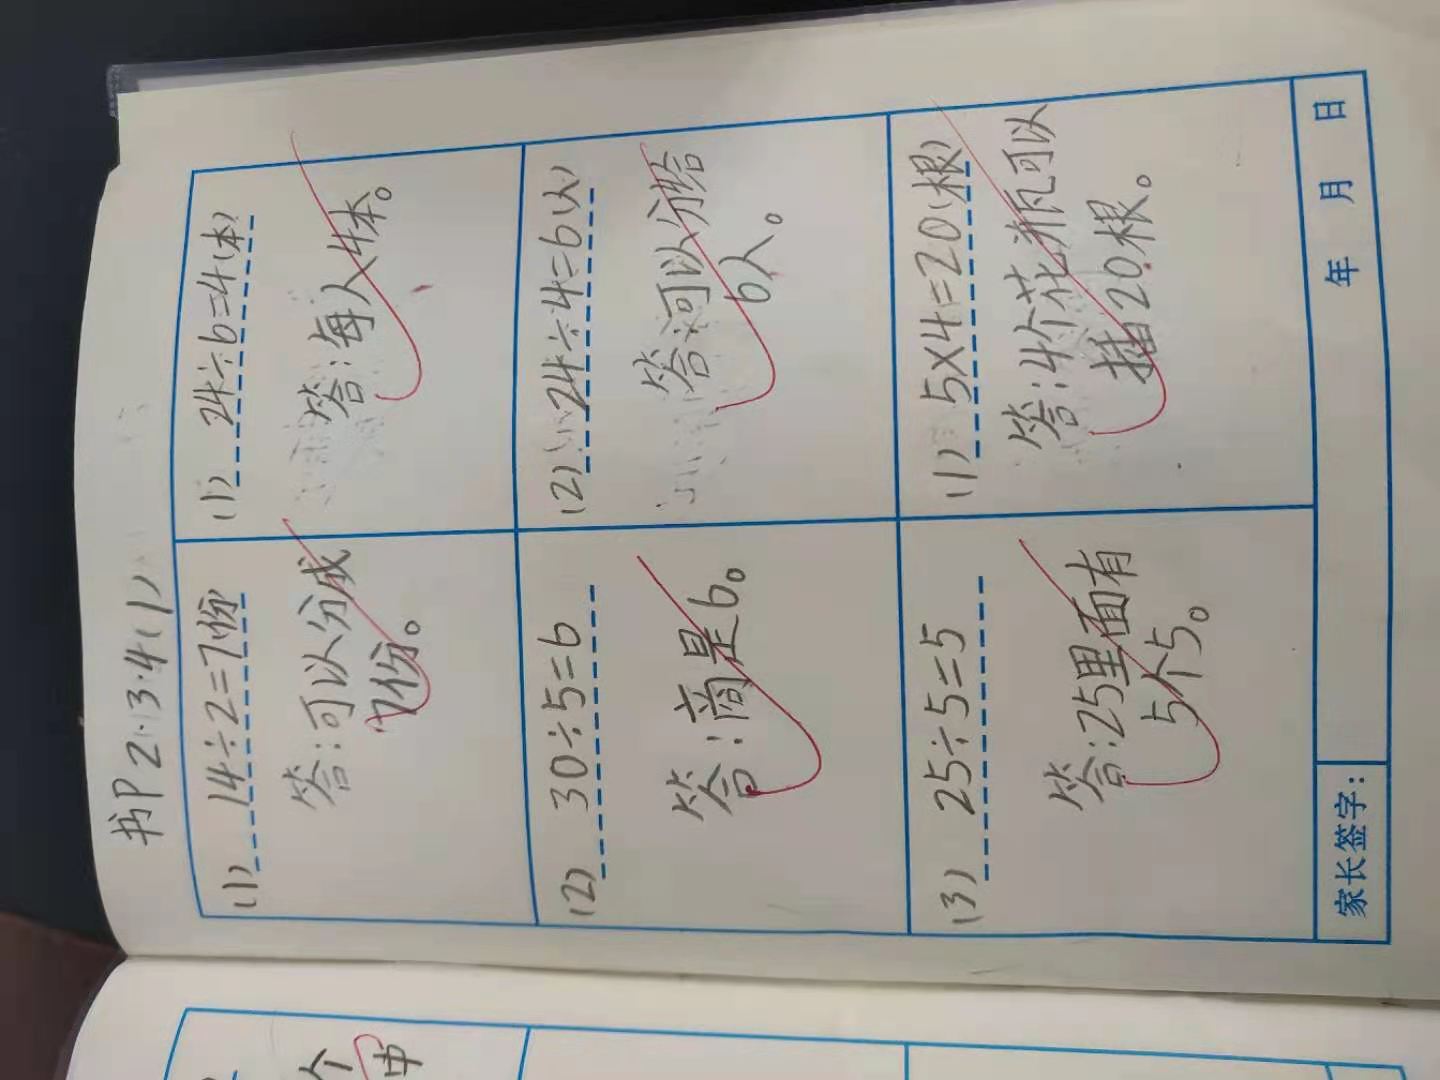 书P21·3·4(1)
(1) 14÷2=7份
答:可以分成
7份。
(2) 30÷5=6
答:商是6。
(3) 25÷5=5
答:25里面有
5个5。
(1) 24÷6=4(本)
答:每人4本。
(2) 24÷4=6(人)
答:可以分给
6人。
(1) 5×4=20(根)
答:4个花瓶可以
插20根。
家长签字: 年 月 日
个